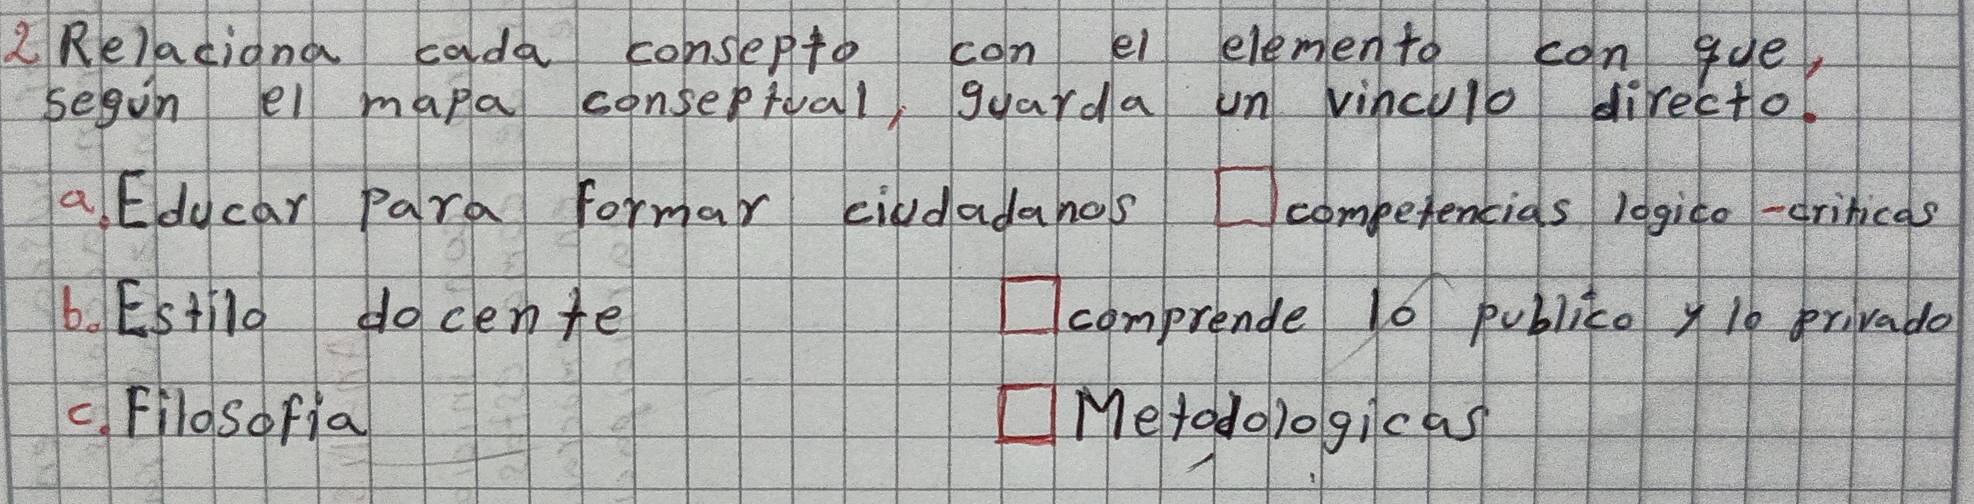 2 Relaciona cada consepto con el elemento con que,
según el mapa conseptual, guarda un vinculo directo.
a. Educar para formar ciudadanos □ competencias logico-criticas
b. Estilo docente □ comprende lo publico y lo privado
c. Filosofia □ Metodologicas